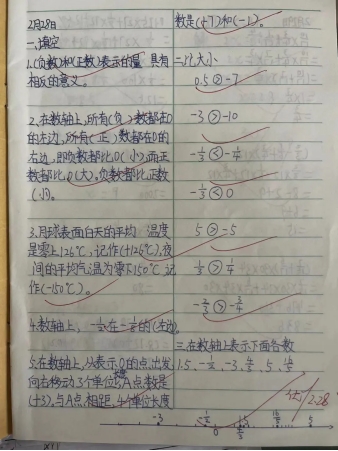 2月28日
一、填空
1.(负数)和(正数)表示的量具有
相反的意义。
2.在数轴上,所有(负)数都在0
的左边,所有(正)数都在0的
右边,即负数都比0(小),而正
数都比0(大),负数都比正数
(小)。
3.月球表面白天的平均温度
是零上126℃,记作(+126℃),夜
间的平均气温为零下150℃,记
作(-150℃)。
4.数轴上,
的(左边)。
5.在数轴上,从表示0的点出发
向右移动3个单位长度,A点数是
(+3),与A点相距4个单位长度
数是(+7)和(-1)。
二、比大小
0.5 > -7
-3 > -10
-1/3 < -1/4
-1/3 < 0
5 > -5
1/3 > 1/4
三.在数轴上表示下面各数
1.5, -1/2, -3,
-3
0
2.28